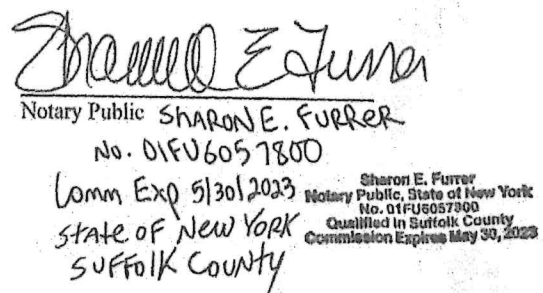 Sharon E Furrer
Notary Public SHARON E. FURRER
No. 01FU6057800
Comm Exp 5/30/2023
STATE OF NEW YORK
SUFFOLK COUNTY
Sharon E. Furrer
Notary Public, State of New York
No. 01FU6057800
Qualified in Suffolk County
Commission Expires May 30, 2023